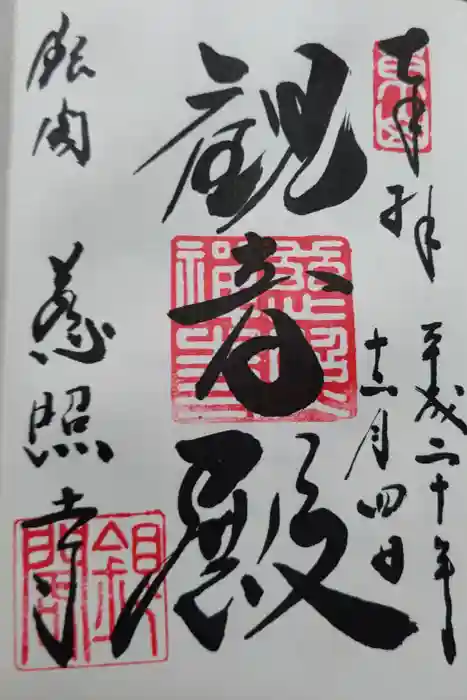 奉拝
平成二十年
十二月四日
観音殿
銀閣
慈照寺
銀閣